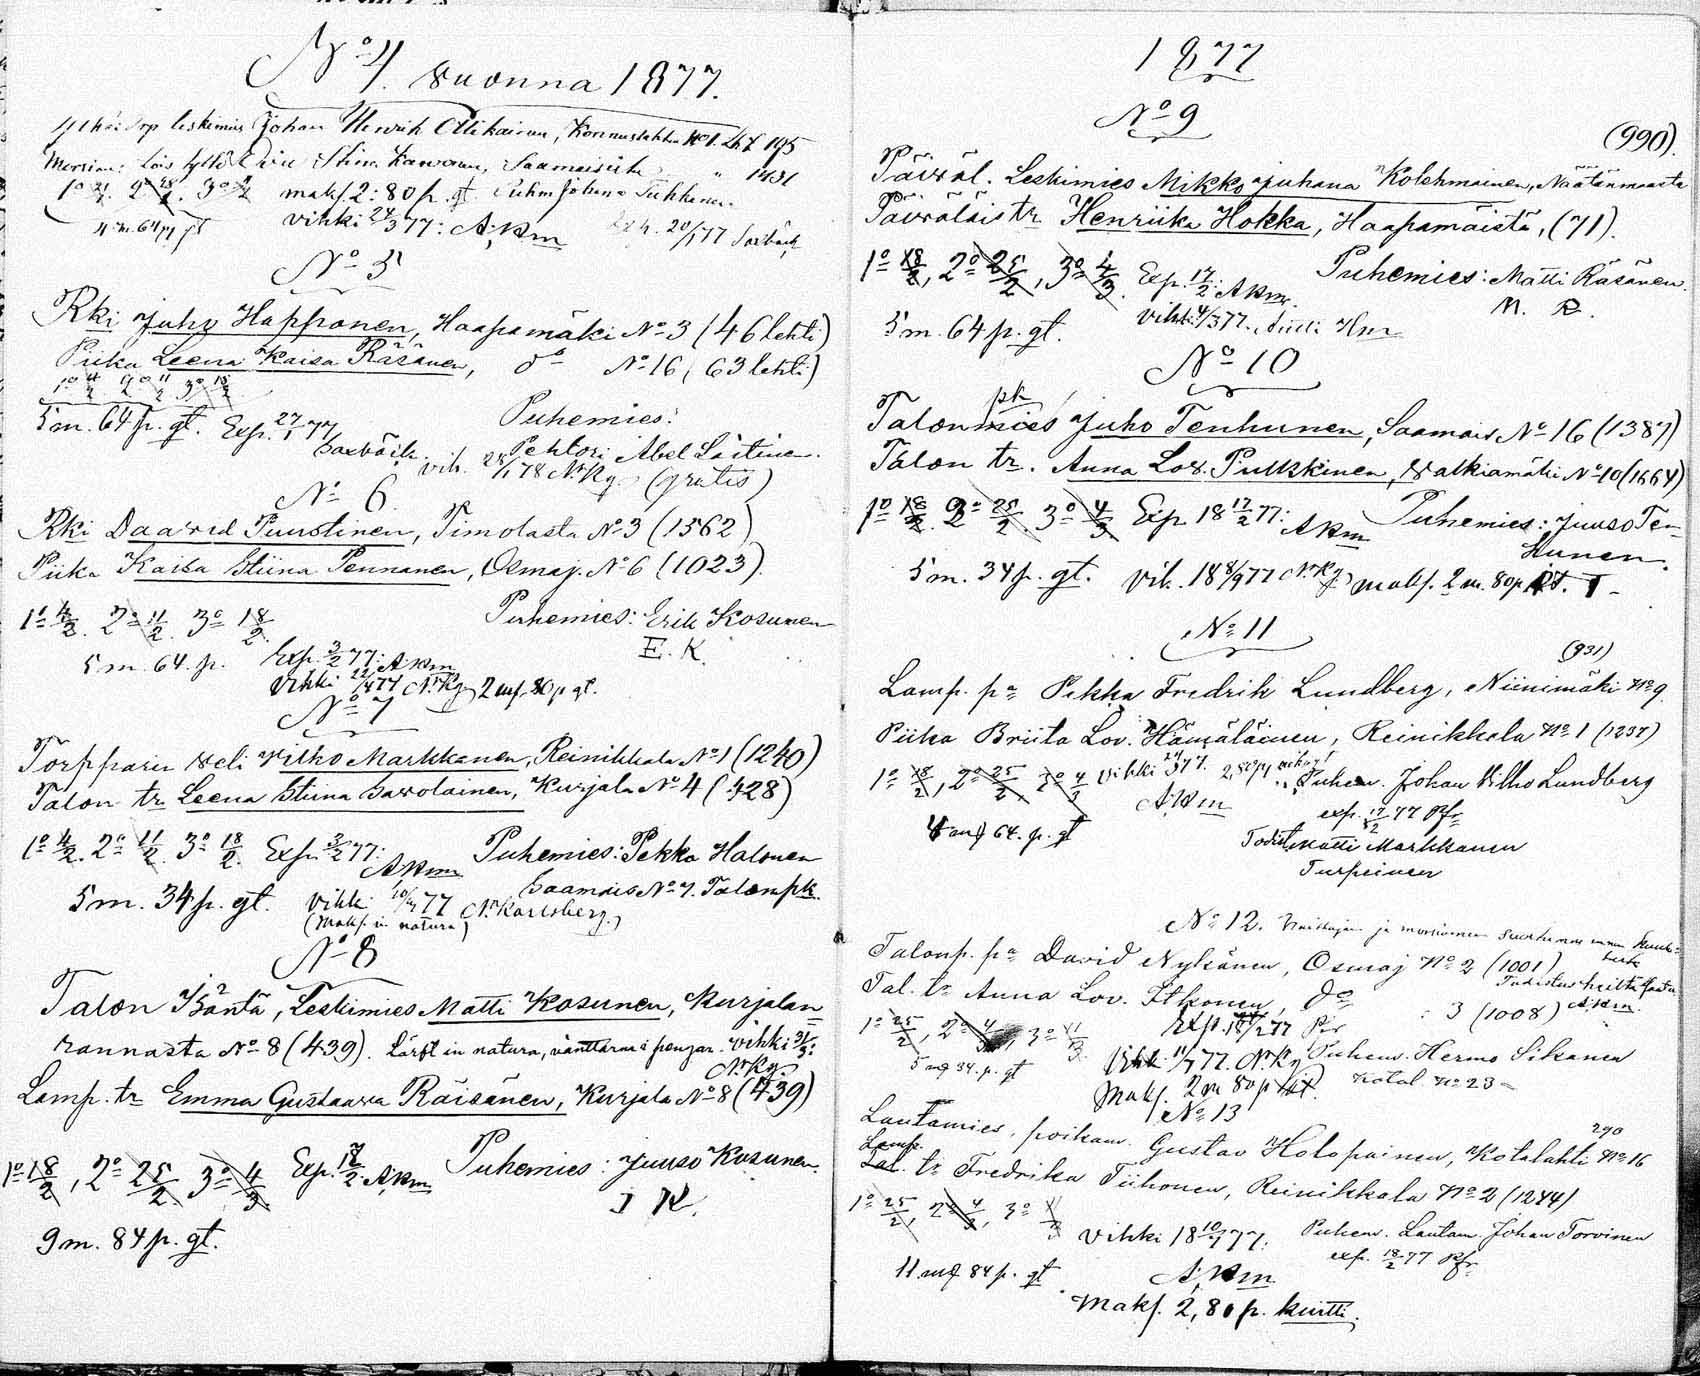 No 4. vuonna 1877.
leskimies Johan Henrik Ollikainen, Konnuslahti No 1. 195
Morsian: Lois tyttö Stina Saamaisista " 1431
1o 2o 3o maks. 2:80 p. gt. Puhm Johan Tukkinen
5 m. 64 p gt vihki 24/3 77: AKm Exp. 20/1 77 Saxbäck
No 5
Rki Juho Happonen, Haapamäki No 3 (46 lehti)
Piika Leena Kaisa Räsänen, do No 16 (63 lehti)
1o 4/2 2o 11/2 3o 18/2
5 m. 64 p. gt. Exp. 27/1 77 Puhemies:
Saxbäck. Pehtori Abel Laitinen.
vih. 28/1 78 N. Kg. (gratis)
No 6
Rki Daavid Puustinen, Timolasta No 3 (1562)
Piika Kaisa Stiina Pennanen, Osmaj. No 6 (1023).
1o 4/2. 2o 11/2. 3o 18/2. Puhemies: Erik Kosunen
5 m. 64. p. Exp. 3/2 77: AKm E. K.
Vihki 22/4 77 N. Kg 2 mk. 80 p gt.
No 7
Torpparin veli Vilho Markkanen, Reinikkala No 1 (1240)
Talon tr Leena Stiina Savolainen, Kurjala No 4 (428)
1o 4/2. 2o 11/2. 3o 18/2. Exp. 3/2 77: AKm Puhemies: Pekka Halonen
5 m. 34 p. gt. vihki 10/4 77 N. Karlsberg. Saamais No 7. Talonpk.
(Maks. in natura)
No 8
Talon Isäntä, Leskimies Matti Kosunen, Kurjalan
rannasta No 8 (439). Lärft in natura, vanttarna i pengar. Vihki 31/3:
N. Kg.
Lamp. tr Emma Gustaava Räisänen, Kurjala No 8 (439)
1o 18/2, 2o 25/2. 3o 4/3. Exp. 17/2. AKm Puhemies: Juuso Kosunen.
J K.
9 m. 84 p. gt.
1877
No 9
(990).
Päiväl. Leskimies Mikko Juhana Kolehmainen, Näätänmaasta
Päiväläis tr Henriika Hokka, Haapamäistä, (71).
1o 18/2, 2o 25/2, 3o 4/3. Exp. 17/2: AKm. Puhemies: Matti Räsänen.
M. R.
5 m. 64 p. gt. Vihki 4/3 77.
No 10
pk
Talonmies Juho Tenhunen, Saamais No 16 (1387)
Talon tr. Anna Lov. Pulkkinen, Valkiamäki No 10 (1664)
1o 18/2. 2o 25/2. 3o 4/3 Exp. 18 17/2 77: AKm Puhemies: Juuso Ten-
hunen.
5 m. 34 p. gt. Vih. 18 8/9 77 N. Kg maks. 2 m. 80 p gt.
No 11
(931)
Lamp. pa Pekka Fredrik Lundberg, Niinimäki No 9
Piika Briita Lov. Hämäläinen, Reinikkala No 1 (1257)
1o 18/2, 2o 25/2, 3o 4/3 vihki 77. Puhem. Johan Vilho Lundberg
AKm exp. 17/2 77 Pfr
64. p. gt Todist. Matti Markkanen
Turpeinen
No 12. Naittajan ja morsiamen
Talonp. pa David Nykänen, Osmaj No 2 (1001)
Tal. tr Anna Lov. Itkonen, do 3 (1008) AKm.
1o 25/2, 2o 4/3, 3o 11/3 Exp. 77 Pfr
5 mk 34. p. gt Vihk 11/7 77. N. Kg Puhem. Hermo Sikanen
Maks. 2 m 80 p Kotal No 23
No 13
290
Lautamies, poikam. Gustav Holopainen, Kotalahti No 16
Lamp.
Tal. tr Fredrika Tiihonen, Reinikkala No 2 (1244)
1o 25/2, 2o 4/3, 3o 11/3 Vihki 18 10/7 77: Puhem. Lautam. Johan Torvinen
exp. 18/2 77 Pfr
11 mk 84 p. gt AKm
Maks. 2,80 p. kuitti.